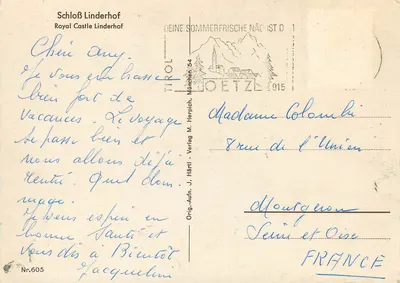 Schloß Linderhof
Royal Castle Linderhof
Chère amy.
Je vous embrasse
bien fort de
vacances. Le voyage
se passe bien et
nous allons déjà
rentré. Quel dom-
mage.
Je vous espère en
bonne santé et
vous dis à Bientôt
Jacqueline
Nr. 605
Orig.-Aufn. J. Härtl - Verlag M. Herpich, München 54
DEINE SOMMERFRISCHE NÄCHST D
TIROL
OETZ
915
Madame Colombi
8 rue de l'Union
Montgeron
Seine et Oise
FRANCE